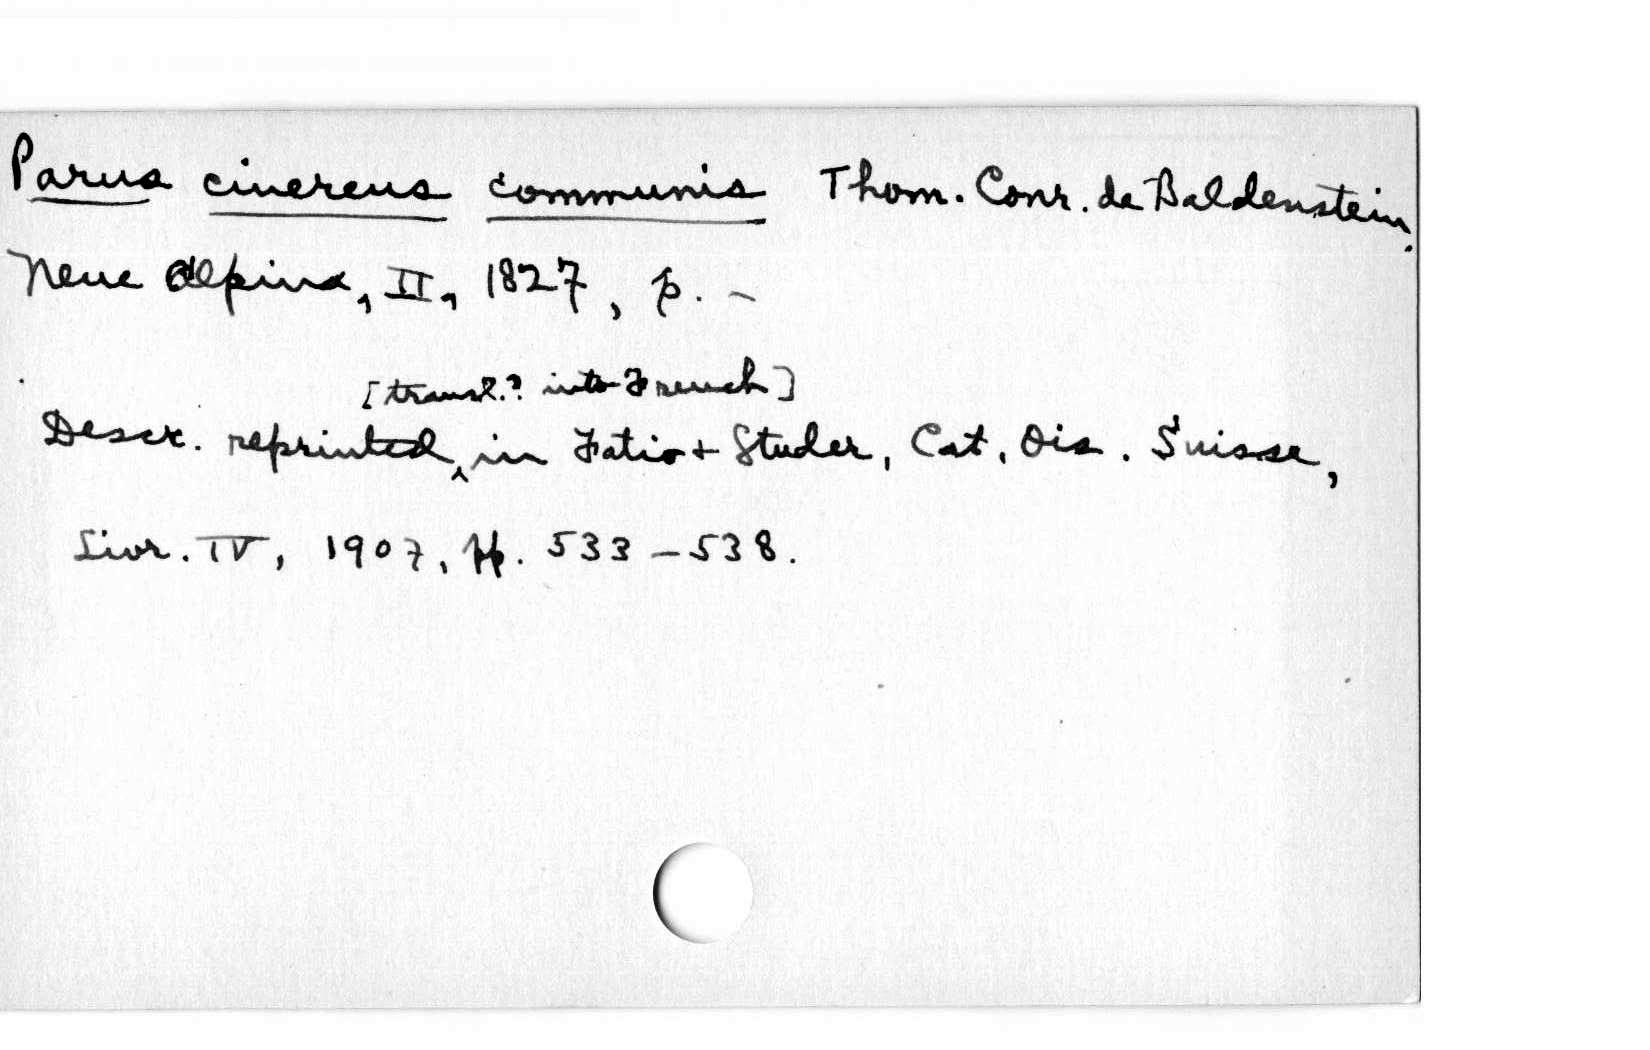 Parus cinereus communis Thom. Conr. de Baldenstein.
Neue Alpina, II, 1827, p. -
[transl.? into French]
Descr. reprinted ‸ in Fatio + Studer, Cat. Ois. Suisse,
Livr. IV, 1907, pp. 533-538.